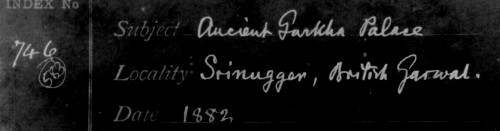 INDEX No
746
Subject Ancient Garkha Palace
Locality Srinugger, British Garwal.
Date 1882